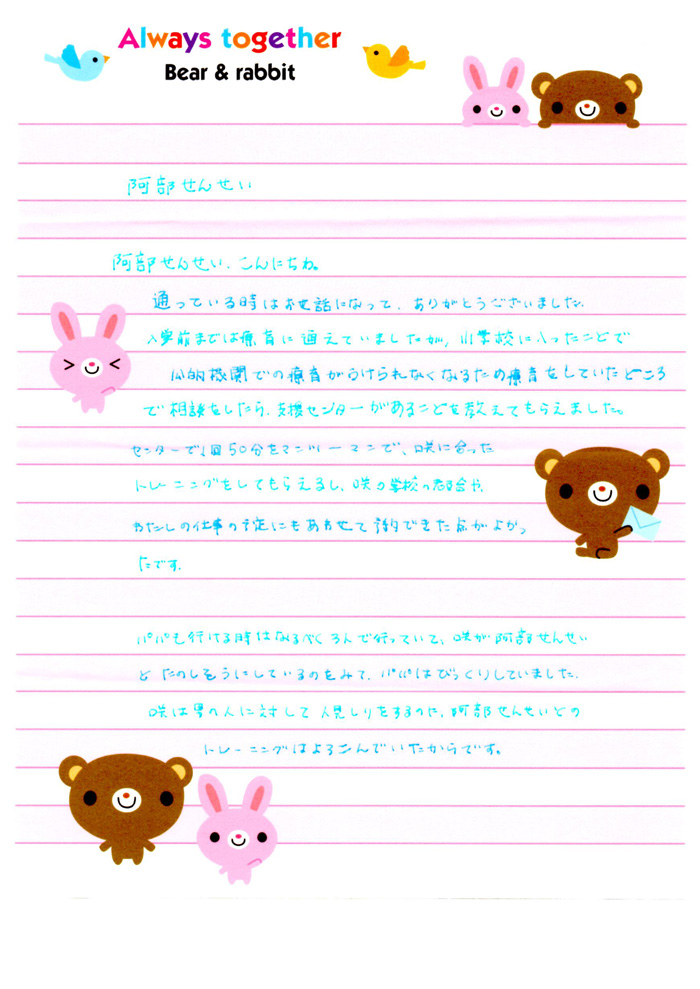 Always together
Bear & rabbit
阿部せんせい
阿部せんせい、こんにちわ。
通っている時はお世話になって、ありがとうございました。
入学前までは療育に通えていましたが、小学校に入ったことで
公的機関での療育がうけられなくなるため療育をしていたところ
で相談をしたら、支援センターがあることを教えてもらえました。
センターで1回50分をマンツーマンで、咲に合った
トレーニングをしてもらえるし、咲の学校の
わたしの仕事の予定にもあわせて予約できた点がよかっ
たです。
パパも行ける時はなるべく3人で行っていて、咲が阿部せんせい
とたのしそうにしているのをみて、パパはびっくりしていました。
咲は男の人に対して人見しりをするのに、阿部せんせいとの
トレーニングはよろこんでいたからです。